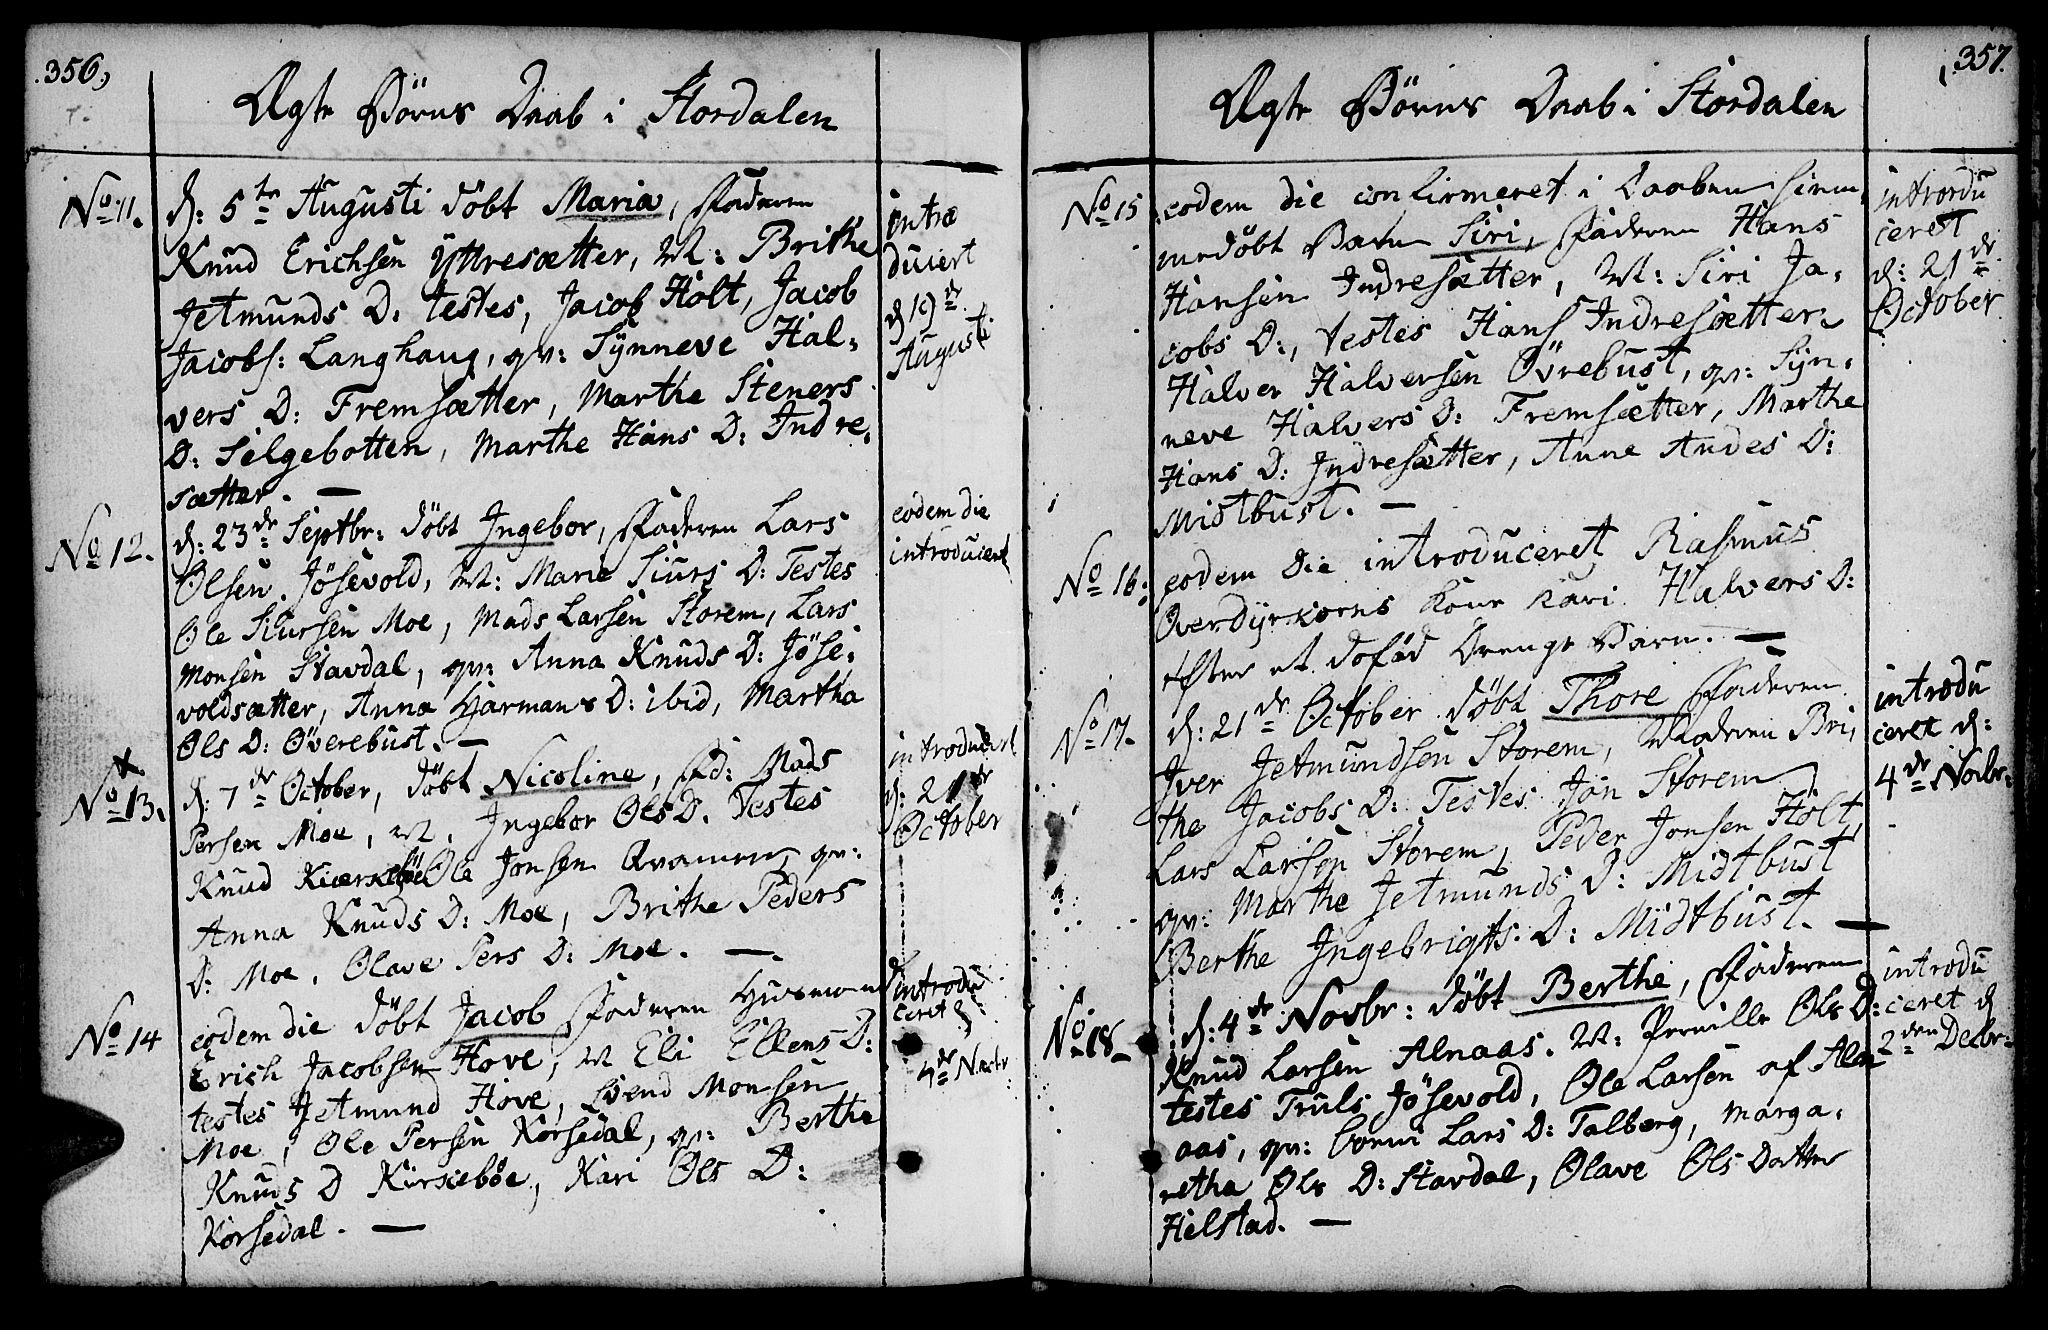 356,
Ægte Börns Daab i Stordalen
No 11.
d: 5te Augusti döbt Maria, Faderen
Knud Erichsen Ÿttresætter, M: Brithe
Jetmunds D: testes, Jacob Holt, Jacob
Jacobs: Langhaug, qv: Sÿnneve Hal-
vers D: Fremsætter, Marthe Steners
D: Selgebotten, Marthe Hans D: Indre-
sætter. —
intro
duciert
d 19de
Augusti
No 12.
d: 23de Septbr: döbt Ingebor, Faderen Lars
Olsen Jösevold, M: Marie Siurs D: Testes
Ole Siursen Moe, Mads Larsen Storem, Lars
Monsen Stavdal, qv: Anna Knuds D: Jöse-
voldsætter, Anna Harmans D: ibid, Martha
Ols D: Överebust. —
eodem die
introduciert
No 13.
d: 7de October, döbt Nicoline, Fd: Mads
Persen Moe, M. Ingebor Ols D. Testes
Knud Kierseböe Ole Jonsen Qvamen, qv:
Anna Knuds D: Moe, Brithe Peders
D: Moe, Olave Pers D: Moe. —
introduciert
d: 21de
October
No 14
eodem die döbt Jacob Faderen Husmand
Erich Jacobsen Hove, M Eli Ellens D:
testes Jetmund Hove, Svend Monsen
Moe, Ole Persen Korsedal, qv: Berthe
Knuds D Kirsebøe, Kari Ols D:
Korsedal. —
introdu
ceret d:
4de Novbr
357.
Ægte Börns Daab i Stordalen
No 15
eodem die confirmeret i Daaben hiem
medöbt Barn Siri, Faderen Hans
Hansen Indresætter, M: Siri Ja-
cobs D:, Testes Hans Indresætter,
Halver Halversen Övrebust, qv: Sÿn-
neve Halvers D: Fremsætter, Marthe
Hans D: Indresætter, Anne Andes D:
Mistbust. —
introdu
ceret
d: 21de
October
No 16:
eodem die introduceret Rasmus
Overdÿrkorns Kone Kari Halvers D:
efter et dofød Drenge Barn. —
No 17.
d: 21de October döbt Thore Faderen
Iver Jetmundsen Storem, Moderen Bri,
the Jacobs D: Testes Jon Storem
Lars Larsen Storem, Peder Jonsen Holt,
qv: Marthe Jetmunds D: Midtbust
Berthe Ingebrigts D: Midtbust. —
introdu
ceret d:
4de Novbr.
No 18
d: 4de Novbr: döbt Berthe, Faderen
Knud Larsen Alnaas. M: Pernille Ols D:
testes Truls Jösevold, Ole Larsen af Aln
aas, qv: Larsd D: Talberg, Marga-
retha Ols D: Stavdal, Olave Ols Datter
Helstad. —
introdu
ceret d
2den Decbr.